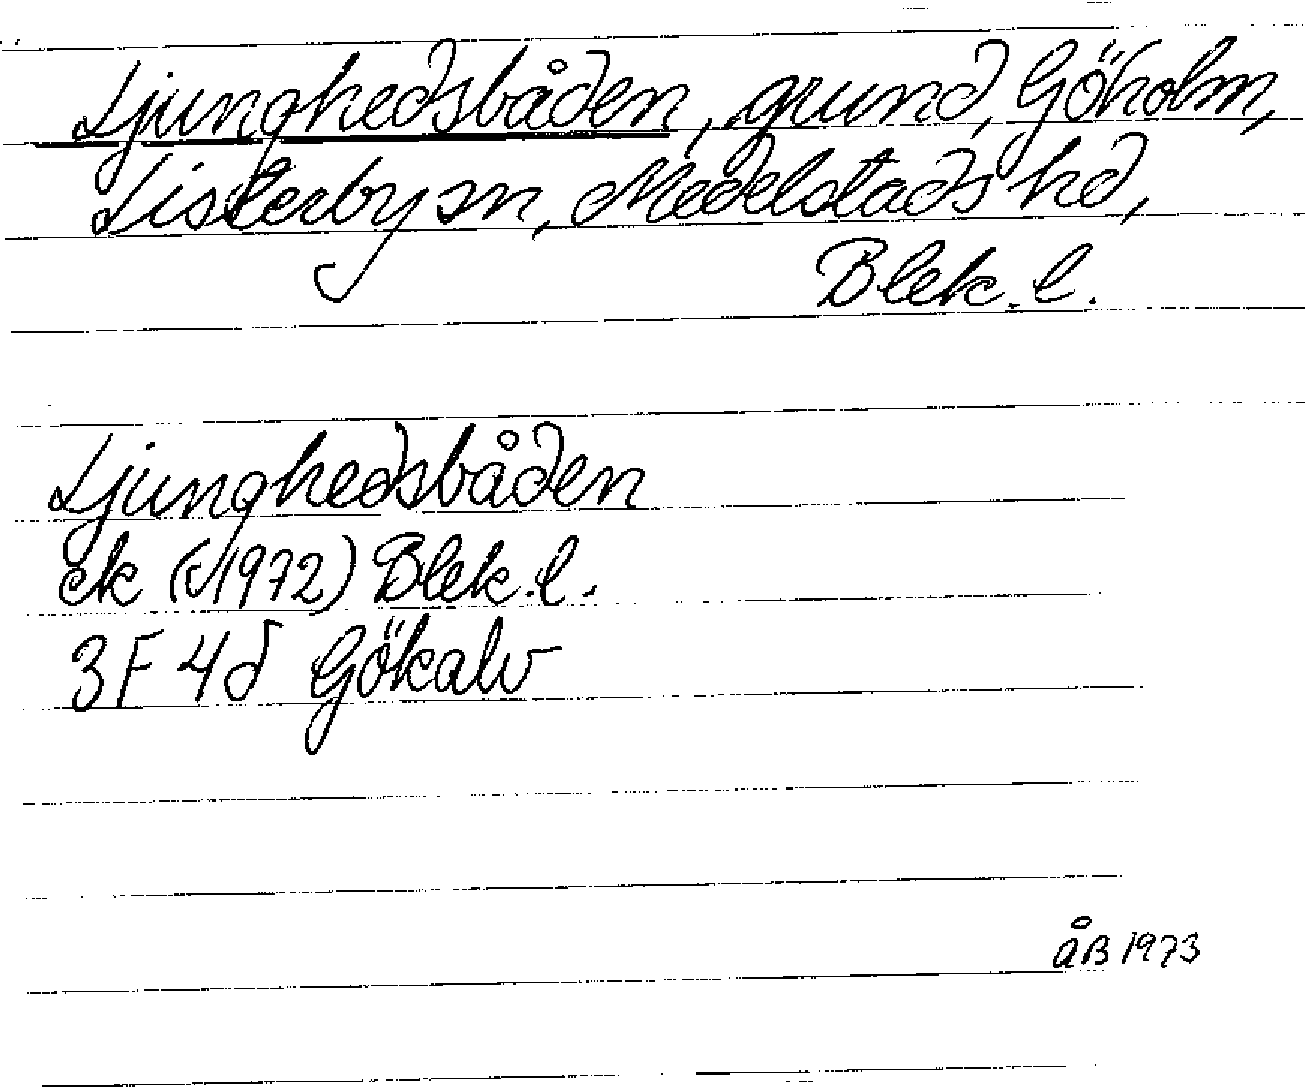 Ljunghedsbåden, grund, Göholm,
Listerby sn, Medelstads hd,
Blek. l.
Ljunghedsbåden
ek (1972) Blek. l.
3F 4d Gökalv
åB 1973